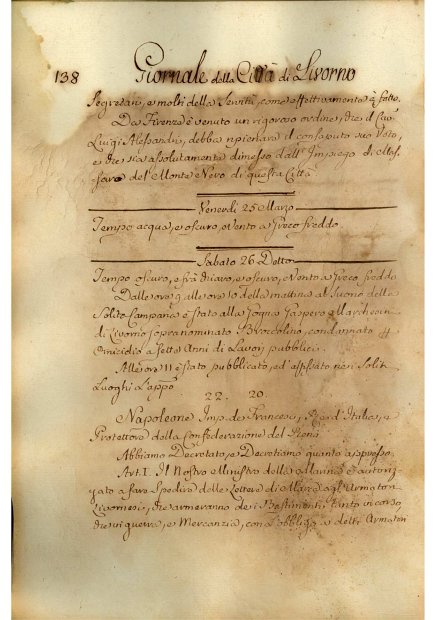 138 Giornale della Città di Livorno
Segretari, e molti della Servitù, come effettivamente è fatto.
Da Firenze è venuto un rigoroso ordine, che il
Luigi Alessandri, debba ripienare il consaputo suo Voto,
e che sia assolutamente dimesso dall' Impiego di
del Monte Nero di questa Città
Venerdì 25 Marzo
Tempo acqua, e oscuro, e Vento a Greco freddo.
Sabato 26 Detto
Tempo oscuro, e frà chiaro, e oscuro, e Vento a Greco freddo
Dalle ore 9 alle ore 10 della mattina al Suono della
Solita Campana è stato alla Gogna Gaspero
di Livorno soprannominato Broccolino, condannato
Omicidio a sette Anni di Lavori pubblici.
Alle ore 11 è stato pubblicato, ed' affissato nei Soliti
Luoghi L'appo
22. 20.
Napoleone Imp. de Francesi, Re d'Italia, e
Protettore della Confederazione del Reno
Abbiamo Decretato, e Decretiamo quanto appresso
Art. I. Il Nostro Ministro della Marina è autoriz
zato a fare Spedire delle Lettere di Marca agl'Armatori
Livornesi, che armeranno dei Bastimenti tanto in corso,
che in guerra, e Mercanzia, con L'obbligo a detti Armatori